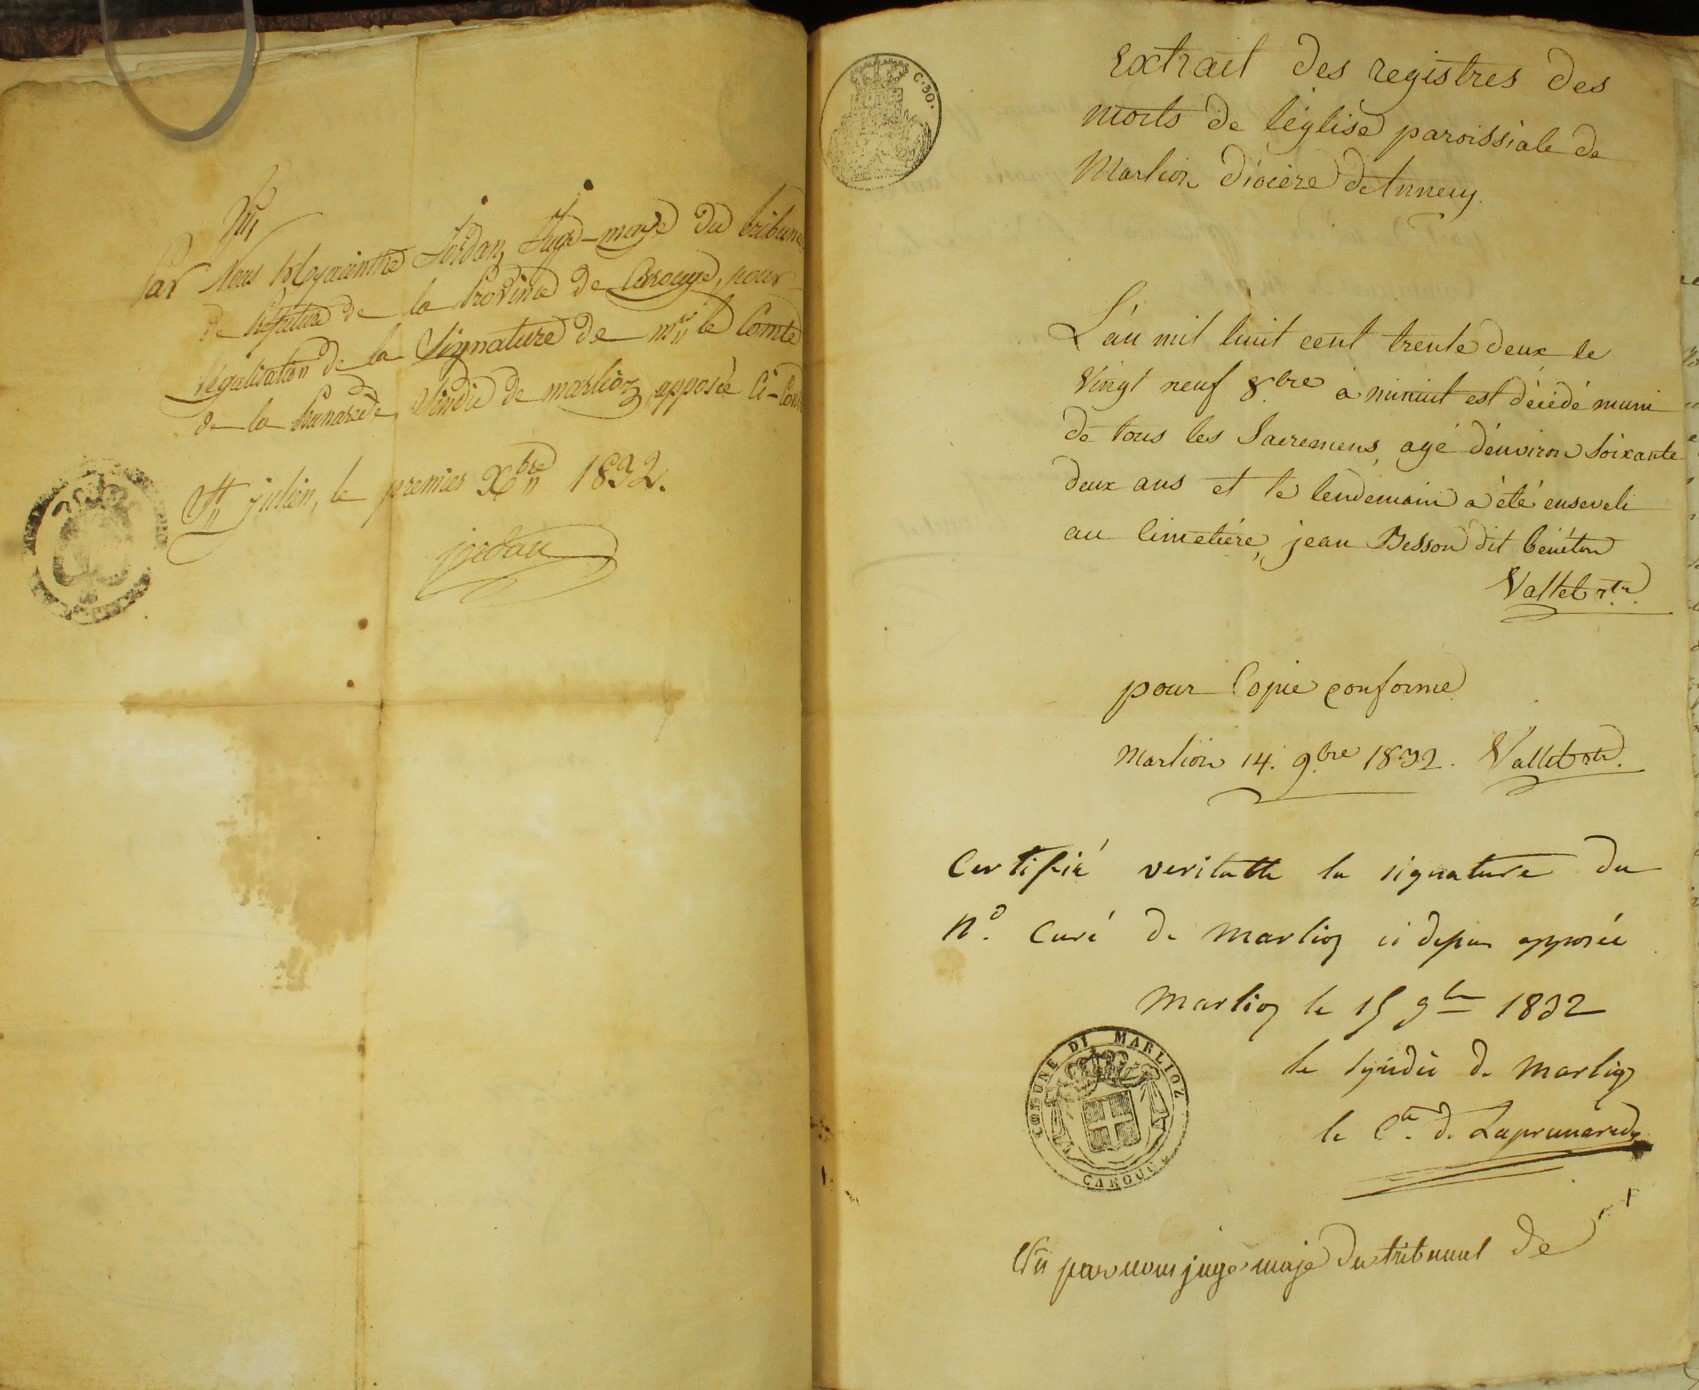 Vu
Par Nous hyacinthe Jordan, Juge-maje du tribunal
de Préfecture de la Province de Carouge, pour
légalisation de la Signature de mr. le Comte
de la Prunarede, Sindic de marlioz apposée Ci-Contre
St julien, le premier Xbre 1832.
jordan
C. 30.
Extrait des registres des
morts de l'église paroissiale de
Marlioz diocèse d'Annecy.
L'an mil huit cent trente deux le
vingt neuf 8bre à minuit est décédé muni
de tous les Sacremens, agé d'environ soixante
deux ans et le lendemain a été enseveli
au cimetiére, jean Besson dit
Vallet
pour Copie conforme
Marlioz 14. 9bre 1832. Vallet
Certifié veritable la signature du
Rd. Curé de Marlioz ci dessus apposée
Marlioz le 15 9bre 1832
le syndic de Marlioz
le Cte. de Laprunarede
COMUNE DI MARLIOZ
CAROUGE
Vu par nous juge maje du tribunal de